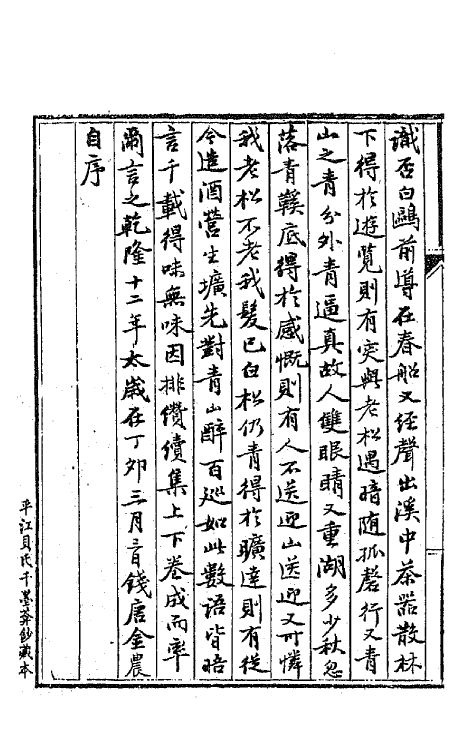 識否白鷗前導在春船又經聲出溪中茶器散林
下得於遊覧則有突與老松遇暗随孤磬行又青
山之青分外青逼真故人雙眼睛又重湖多少秋忽
落青鞵底得於感慨則有人不送迎山送迎又可憐
我老松不老我髮已白松仍青得於曠達則有從
今造酒營生壙先對青山醉百廵如此數語皆暗
言千載得味無味因排儹續集上下卷成而率
爾言之乾隆十二年太歳在丁夘三月三日錢唐金農
自序
平江貝氏千墨莽鈔藏本